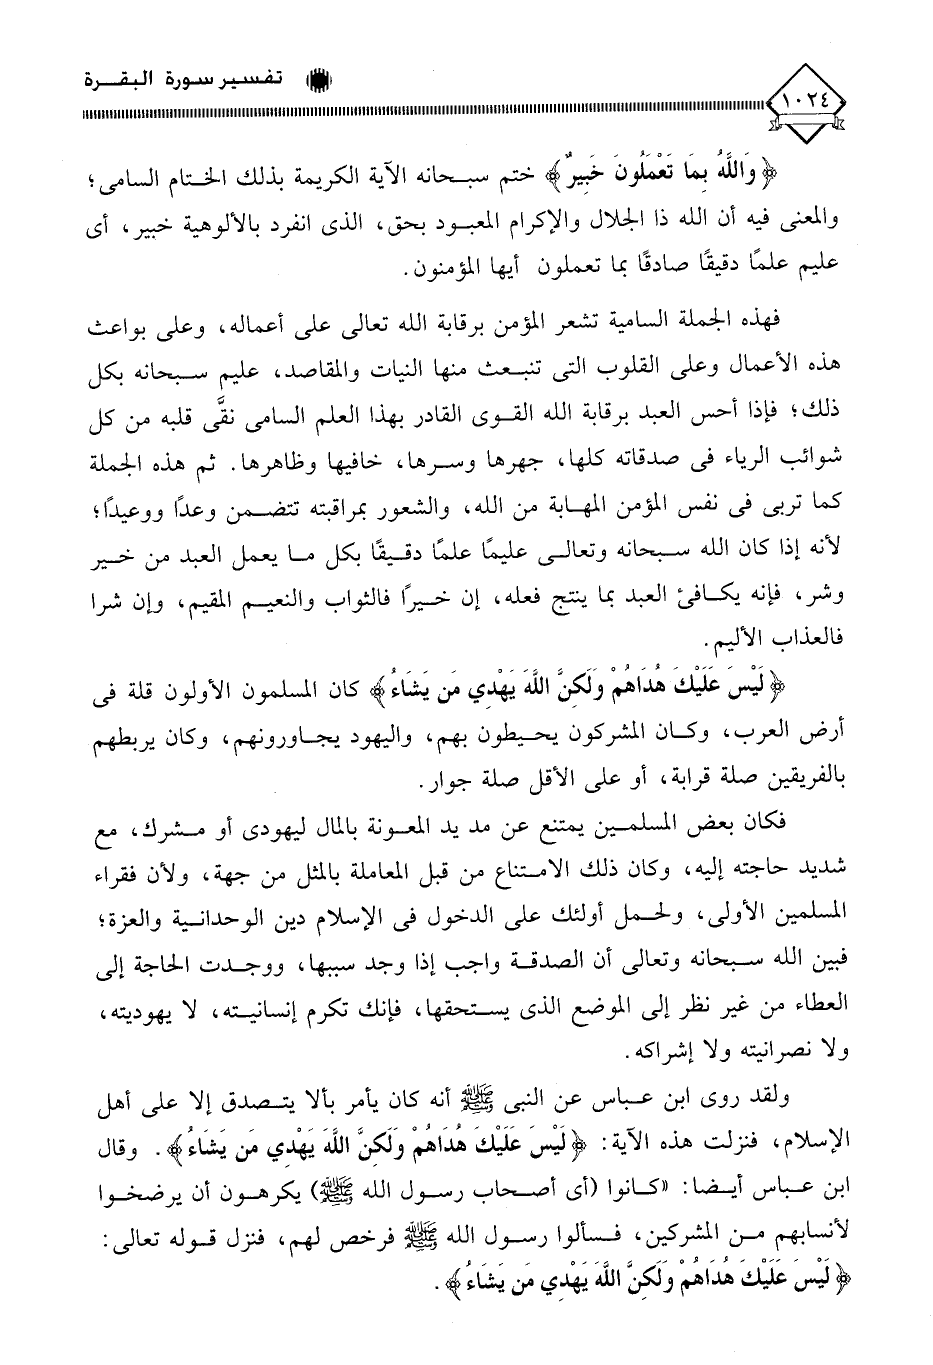 تفسير سورة البقرة
١٠٢٤
﴿وَاللَّهُ بِمَا تَعْمَلُونَ خَبِيرٌ﴾ ختم سبحانه الآية الكريمة بذلك الختام السامى؛
والمعنى فيه أن الله ذا الجلال والإكرام المعبود بحق، الذى انفرد بالألوهية خبير، أى
عليم علمًا دقيقًا صادقًا بما تعملون أيها المؤمنون.
فهذه الجملة السامية تشعر المؤمن برقابة الله تعالى على أعماله، وعلى بواعث
هذه الأعمال وعلى القلوب التى تنبعث منها النيات والمقاصد، عليم سبحانه بكل
ذلك؛ فإذا أحس العبد برقابة الله القوى القادر بهذا العلم السامى نقَّى قلبه من كل
شوائب الرياء فى صدقاته كلها، جهرها وسرها، خافيها وظاهرها. ثم هذه الجملة
كما تربى فى نفس المؤمن المهابة من الله، والشعور بمراقبته تتضمن وعدًا ووعيدًا؛
لأنه إذا كان الله سبحانه وتعالى عليمًا علمًا دقيقًا بكل ما يعمل العبد من خير
وشر، فإنه يكافئ العبد بما ينتج فعله، إن خيرًا فالثواب والنعيم المقيم، وإن شرا
فالعذاب الأليم.
﴿لَيْسَ عَلَيْكَ هُدَاهُمْ وَلَكِنَّ اللَّهَ يَهْدِي مَن يَشَاءُ﴾ كان المسلمون الأولون قلة فى
أرض العرب، وكان المشركون يحيطون بهم، واليهود يجاورونهم، وكان يربطهم
بالفريقين صلة قرابة، أو على الأقل صلة جوار.
فكان بعض المسلمين يمتنع عن مد يد المعونة بالمال ليهودى أو مشرك، مع
شديد حاجته إليه، وكان ذلك الامتناع من قبل المعاملة بالمثل من جهة، ولأن فقراء
المسلمين الأولى، ولحمل أولئك على الدخول فى الإسلام دين الوحدانية والعزة؛
فبين الله سبحانه وتعالى أن الصدقة واجب إذا وجد سببها، ووجدت الحاجة إلى
العطاء من غير نظر إلى الموضع الذى يستحقها، فإنك تكرم إنسانيته، لا يهوديته،
ولا نصرانيته ولا إشراكه.
ولقد روى ابن عباس عن النبى ﷺ أنه كان يأمر بألا يتصدق إلا على أهل
الإسلام، فنزلت هذه الآية: ﴿لَيْسَ عَلَيْكَ هُدَاهُمْ وَلَكِنَّ اللَّهَ يَهْدِي مَن يَشَاءُ﴾. وقال
ابن عباس أيضا: «كانوا (أى أصحاب رسول الله ﷺ) يكرهون أن يرضخوا
لأنسابهم من المشركين، فسألوا رسول الله ﷺ فرخص لهم، فنزل قوله تعالى:
﴿لَيْسَ عَلَيْكَ هُدَاهُمْ وَلَكِنَّ اللَّهَ يَهْدِي مَن يَشَاءُ﴾.